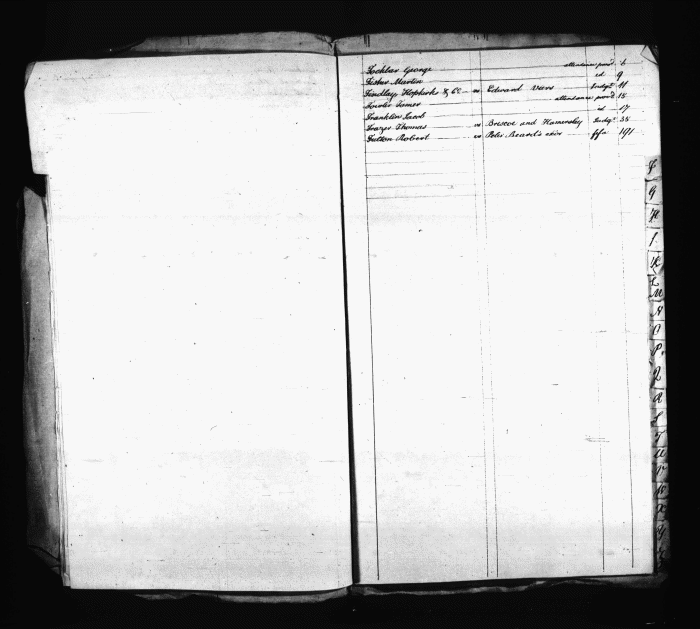 Fochlar George attendance prov'd 6
Fister Martin id 9
Findlay, Hopkirks & Co vs Edward Veirs Judgt 11
Fowler Jomer attendance prov'd 15
Franklin Jacob id 17
Frazer Thomas vs Briscoe and Hamersley Judgt 38
Fulton Robert vs Peter Beard's exor ffa 191
F
G
H
I
K
L
M
N
O
P
Q
R
S
T
U
V
W